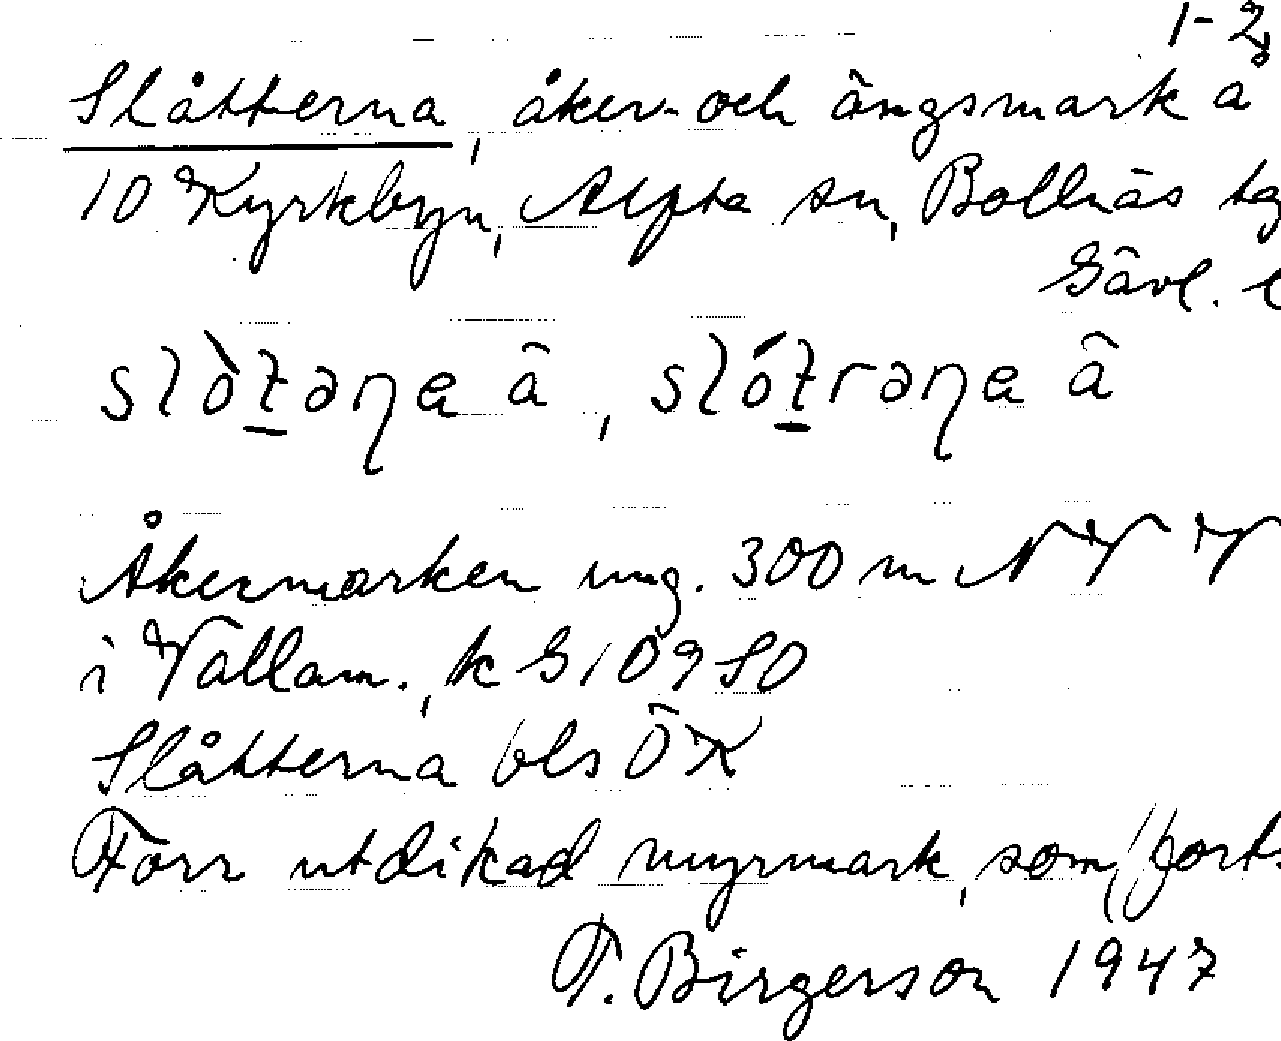 1-2
Slåtterna, åker- och ängsmark å
10 Kyrkbyn, Alfta sn, Bollnäs
Gävl. l
slòt̠əɳa â, slót̠rəɳa â
Åkermarken ung. 300 m NV V
i Vallam., k G 109 SO
Slåtterna bls ÖK
Förr utdikad myrmark, som (forts.
T. Birgerson 1947